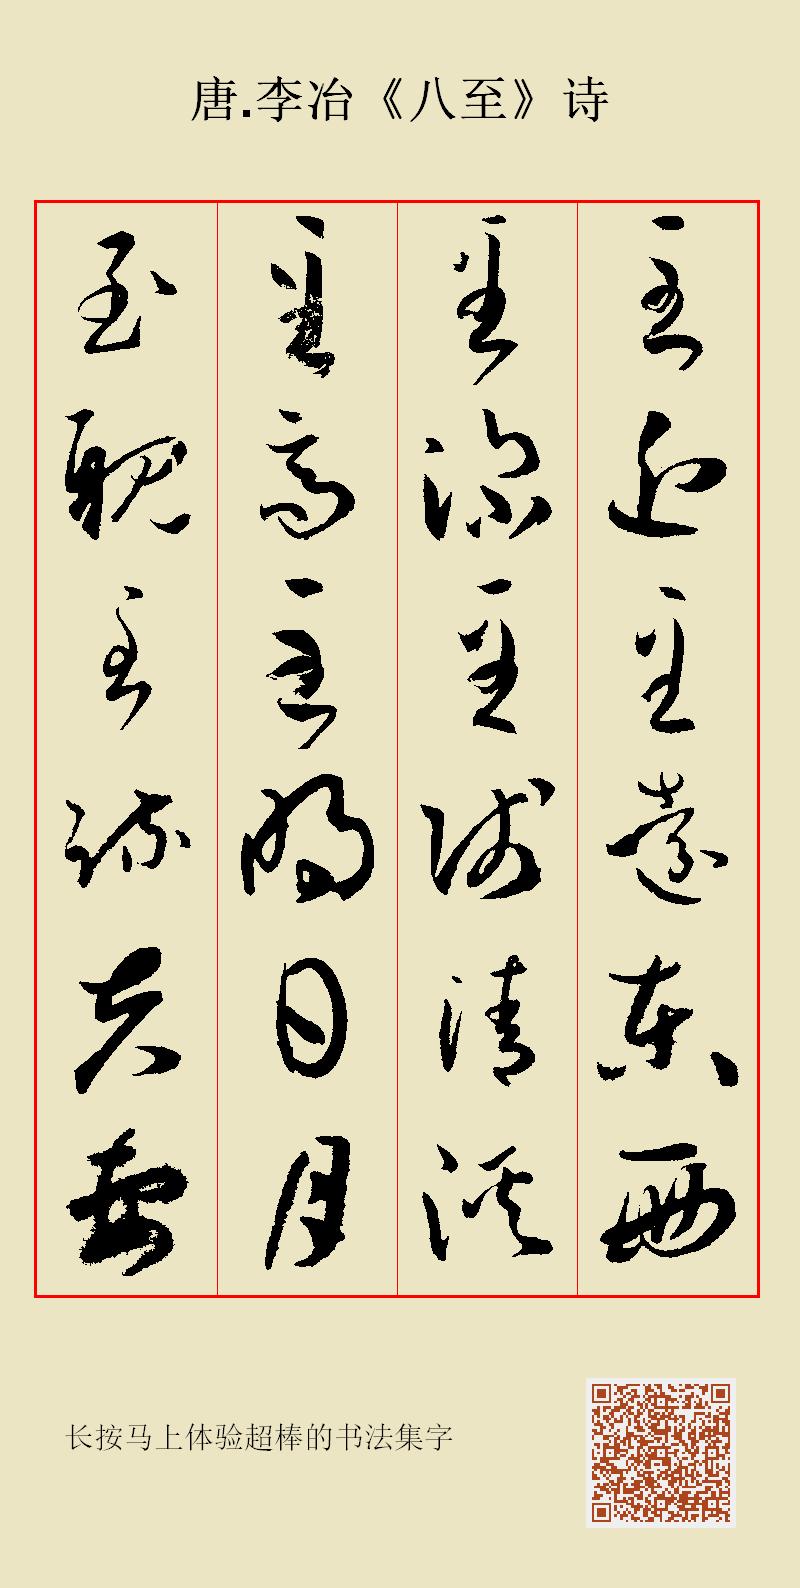 唐.李冶《八至》诗
至近至遠東西
至深至淺清溪
至高至明日月
至親至疏夫妻
长按马上体验超棒的书法集字